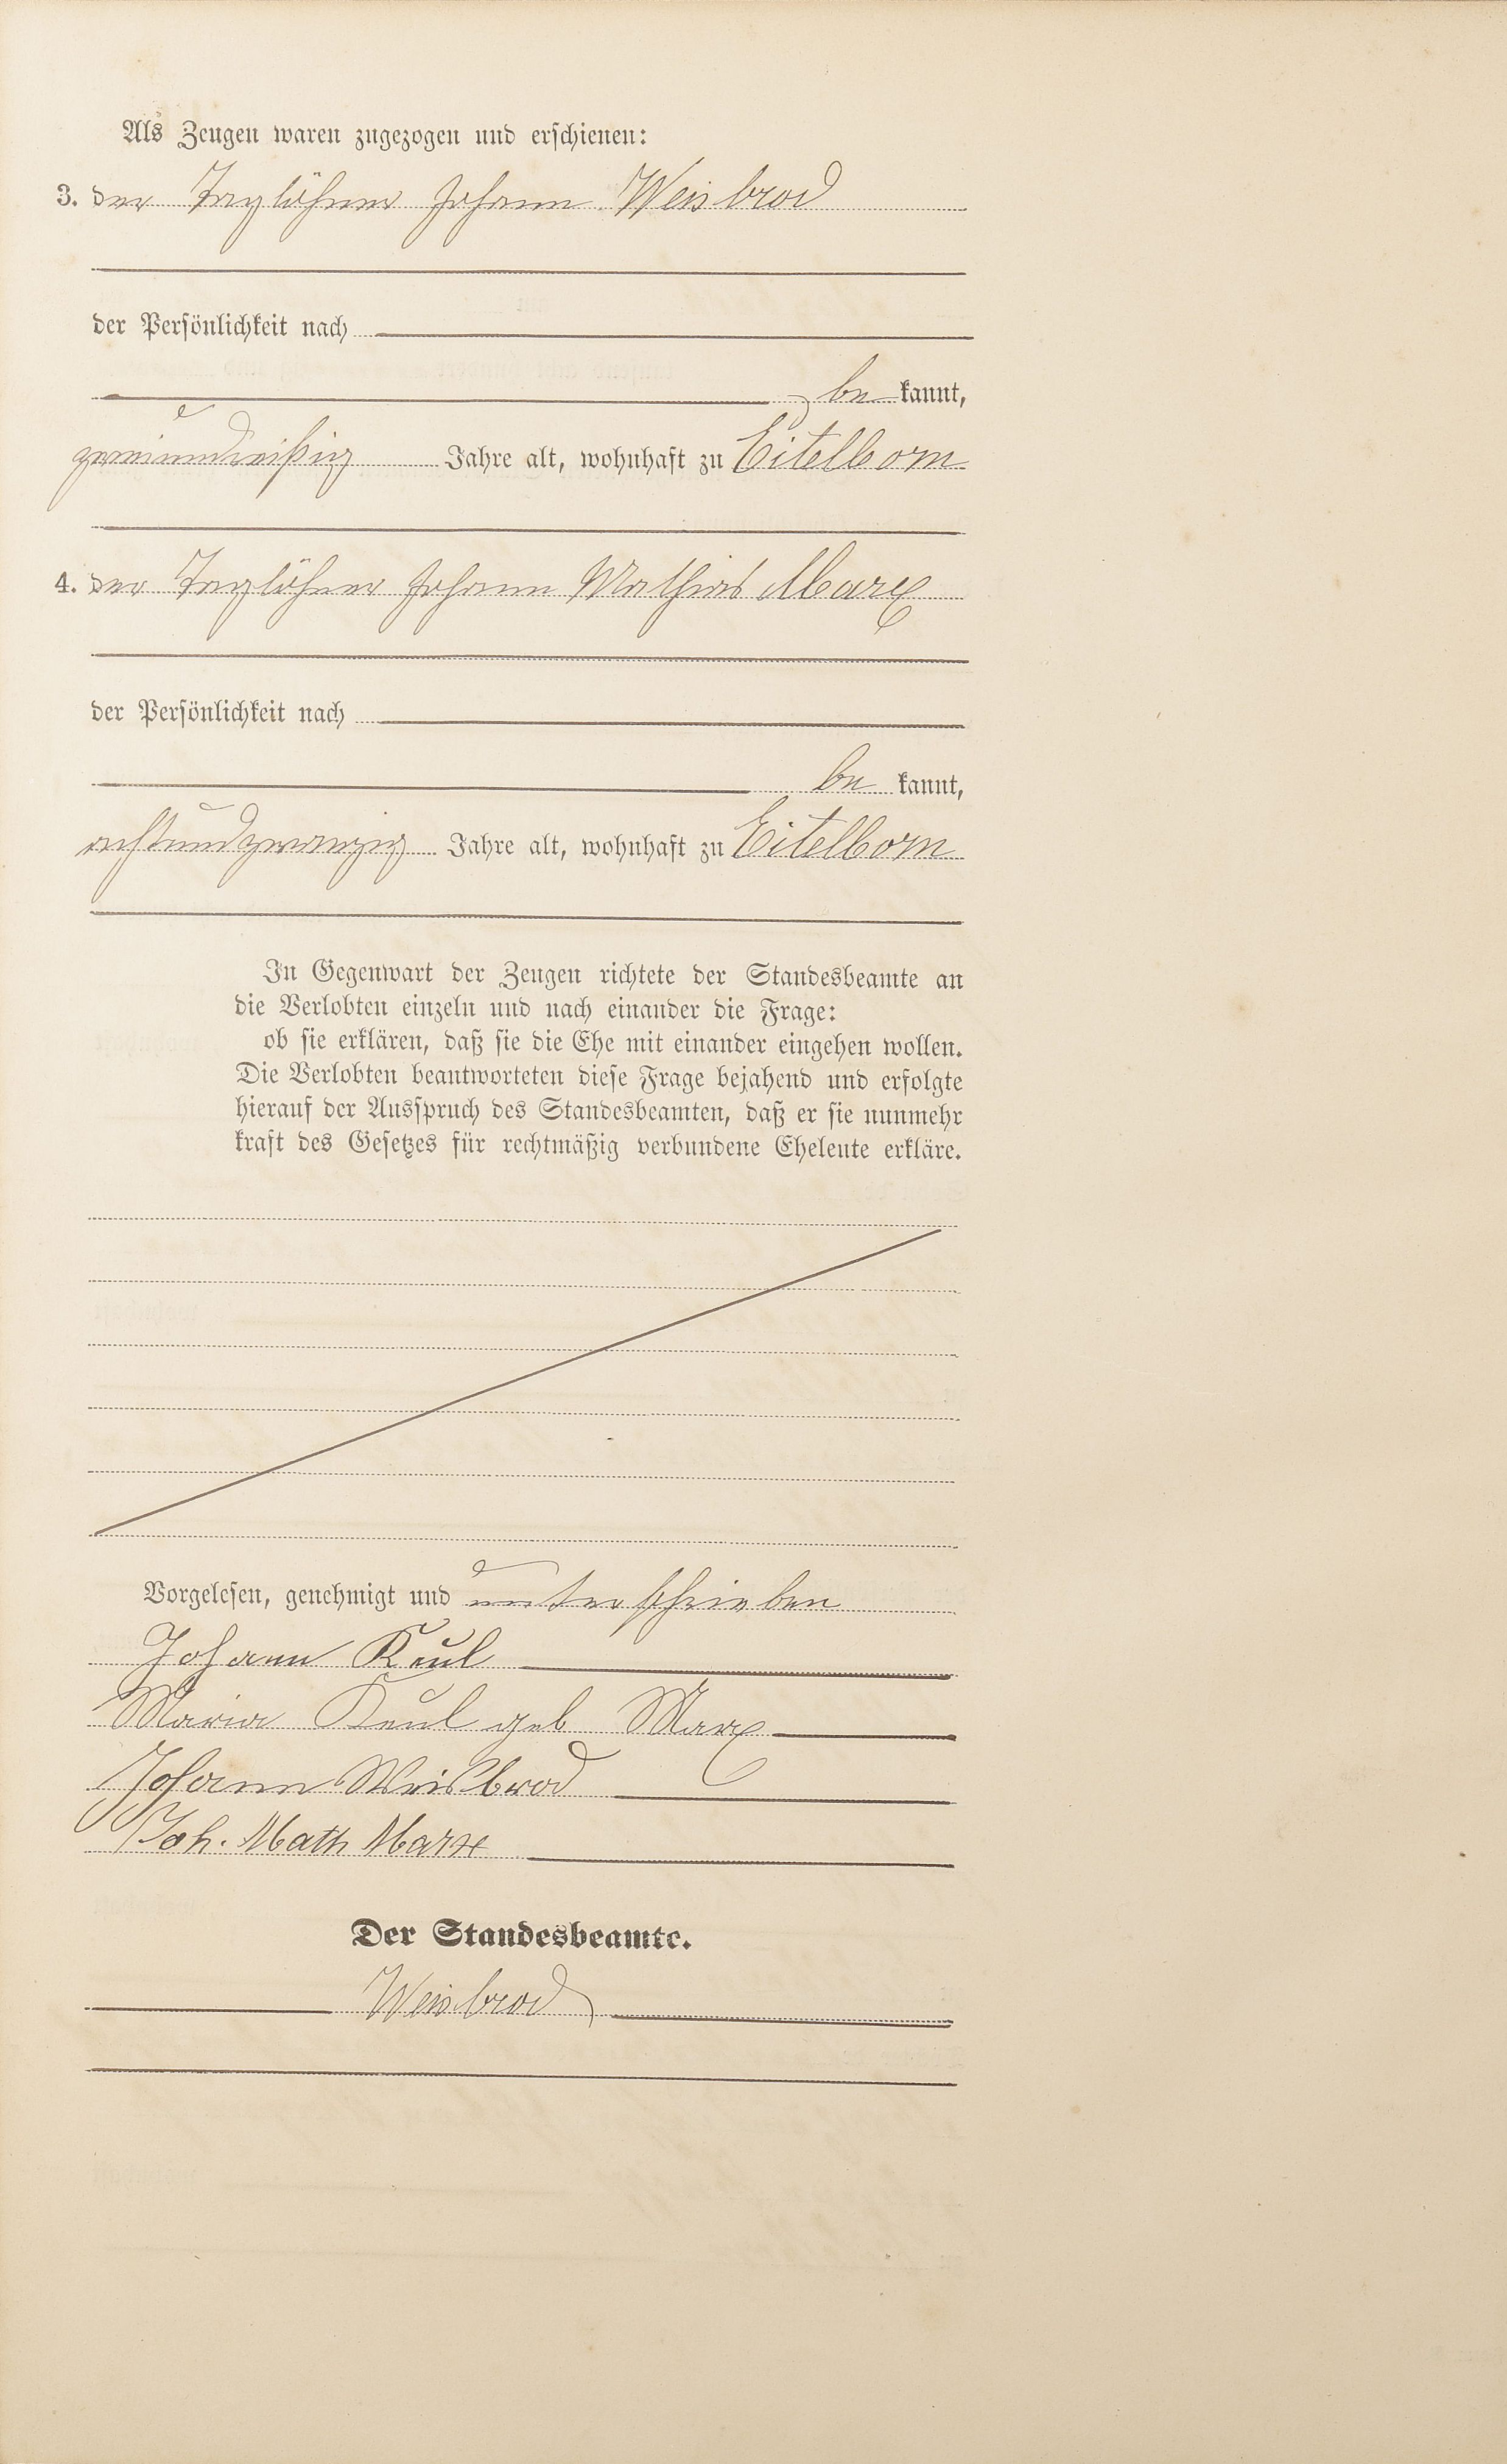 Als Zeugen waren zugezogen und erschienen:
3. der Taglöhner Johann Weisbrod
der Persönlichkeit nach
be kannt,
zweiunddreißig Jahre alt, wohnhaft zu Eitelborn
4. der Taglöhner Johann Mathias Marx
der Persönlichkeit nach
be kannt,
achtundzwanzig Jahre alt, wohnhaft zu Eitelborn
In Gegenwart der Zeugen richtete der Standesbeamte an
die Verlobten einzeln und nach einander die Frage:
ob sie erklären, daß sie die Ehe mit einander eingehen wollen.
Die Verlobten beantworteten diese Frage bejahend und erfolgte
hierauf der Ausspruch des Standesbeamten, daß er sie nunmehr
kraft des Gesetzes für rechtmäßig verbundene Eheleute erkläre.
Vorgelesen, genehmigt und unterschrieben
Johann Keul
Maria Keul geb Marx
Johann Weisbrod
Joh. Math Marx
Der Standesbeamte.
Weisbrod